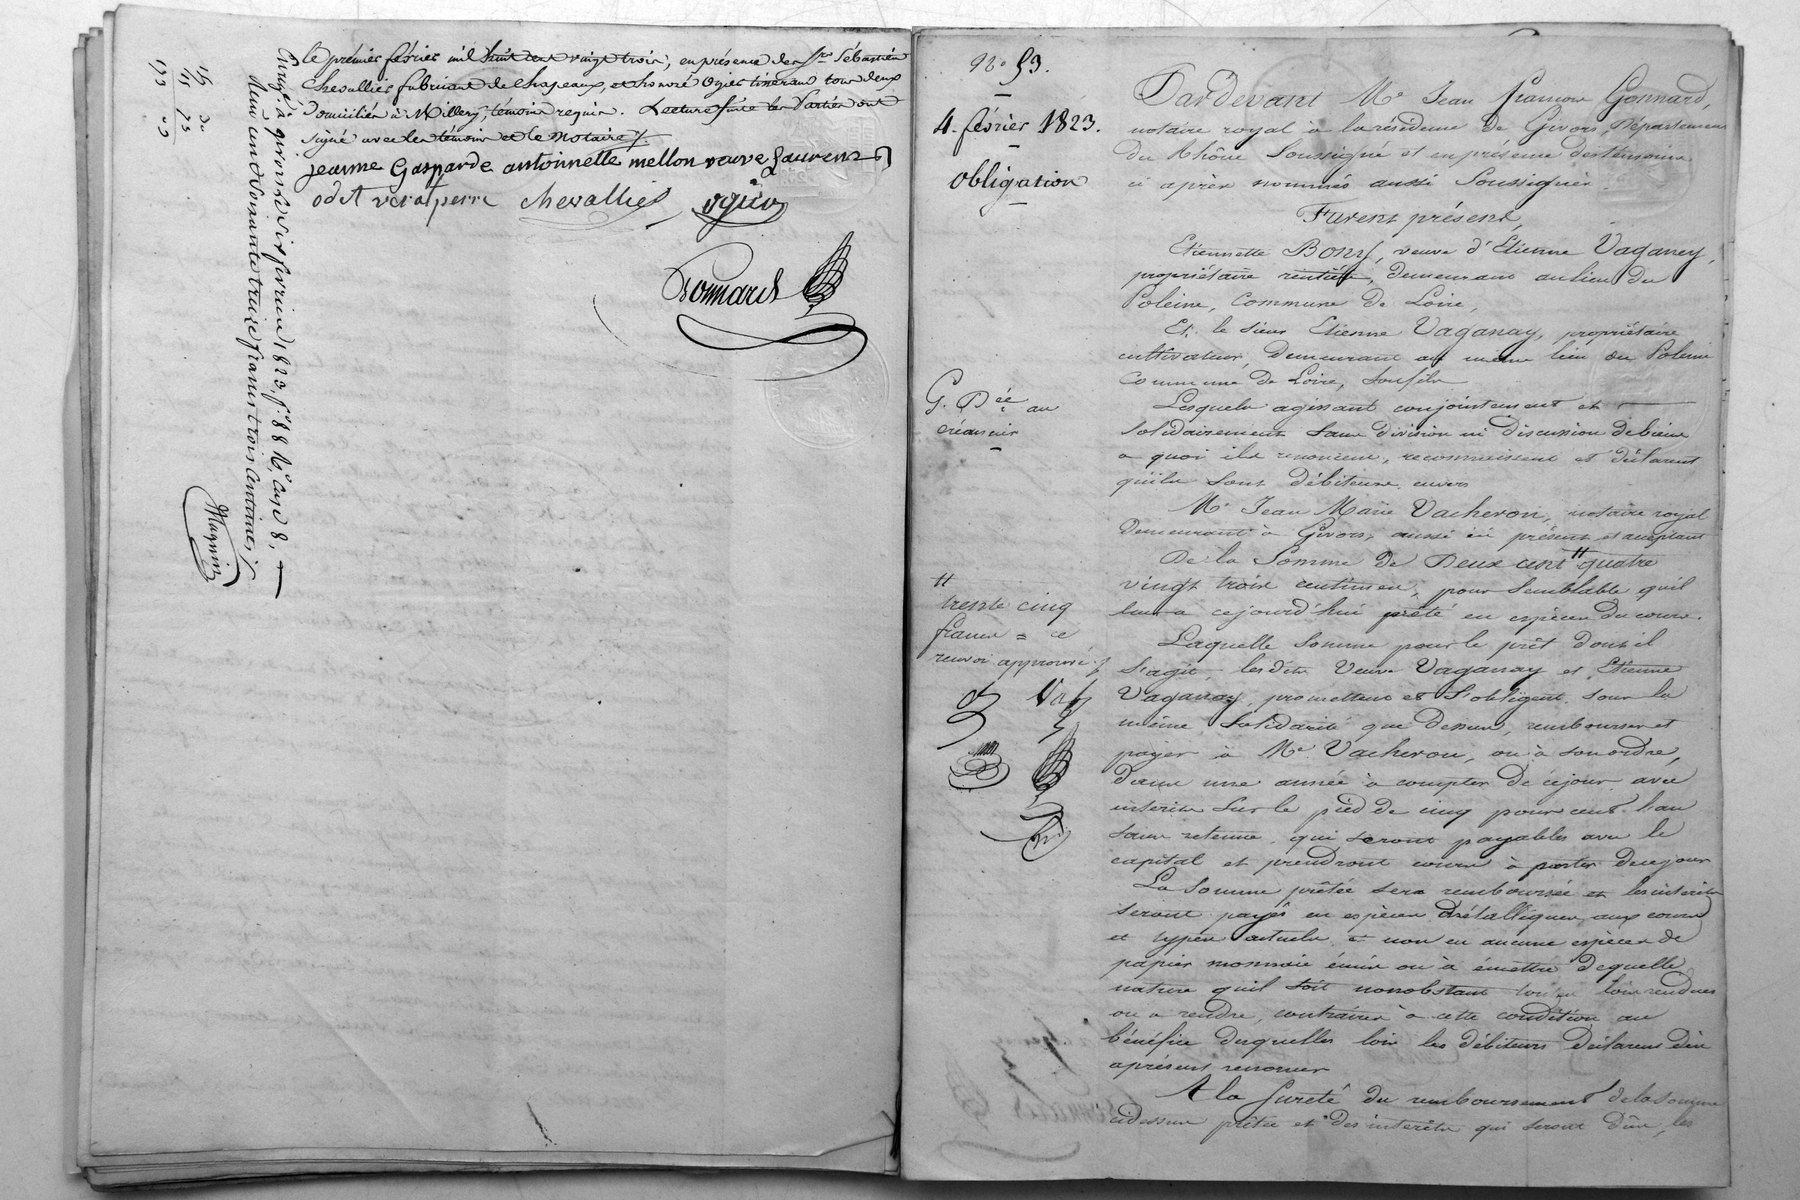 le premier février mil huit cent vingt trois, en présence des Srs Sébastien
Chevallier fabricant de chapeaux, et honoré Ogier tisserand tous deux
domiciliés à Millery, témoins requis. Lecture faite les Parties ont
signé avec les témoins et le Notaire /.
jeanne Gasparde antoinnette mellon veuve Laurens
odet verd pierre chevallier ogier
Gonnard
Enregé à givors le dix février 1823, fo 88 Ro case 8,
Reçu cent soixante treize francs trois centimes /.
Magnin
No 53.
4. février 1823.
Obligation
G. Dée au
créancier
tt
trente cinq
francs = ce
renvoi approuvé /.
Pardevant Me Jean françois Gonnard,
notaire royal à la résidence de Givors, Département
du Rhône Soussigné et en présence des témoins
ci après nommés aussi Soussignés.
Furent présents,
Etiennette Bony, veuve d'Etienne Vaganey,
propriétaire rentière, demeurant au lieu du
Poleine, Commune de Loire,
Et le sieur Etienne Vaganay, propriétaire
cultivateur, demeurant au même lieu du Polein
Commune de Loire, Son fils
Lesquels agissant conjointement et
solidairement Sans division ni discussion de biens
a quoi ils renoncent, reconnaissent et déclarent
qu'ils Sont débiteurs, envers
Mr Jean Marie Vacheron, notaire royal
Demeurant à Givors, aussi ici présent et acceptant
De la Somme de Deux cent tt quatre
vingt trois centimes, pour Semblable qu'il
leur a cejourd'hui prêté en espèces du cours.
Laquelle Somme pour le prêt dont il
S'agit, lesdits Veuve Vaganay et Etienne
Vaganay, promettent et S'obligent Sous la
même Solidarité que dessus, rembourser et
payer à Me Vacheron, ou à son ordre,
dans une année à compter de cejour avec
intérêts Sur le pied de cinq pour cent l'an
Sans retenue, qui seront payables avec le
capital et prendront cours à partir de cejour
La Somme prêtée sera remboursée et les intérêts
seront payés en espèces métalliques aux cours
et types actuels et non en aucune espèces de
papier monnaie émis ou à émettre de quelle
nature qu'il soit nonobstant toutes lois rendues
ou a rendre, contraires à cette condition au
bénéfice desquelles lois les débiteurs déclarent dès
aprésent renoncer
A la Sureté du remboursement de la Somme
cidessus prêtée et des intérêts qui seront dûs, les